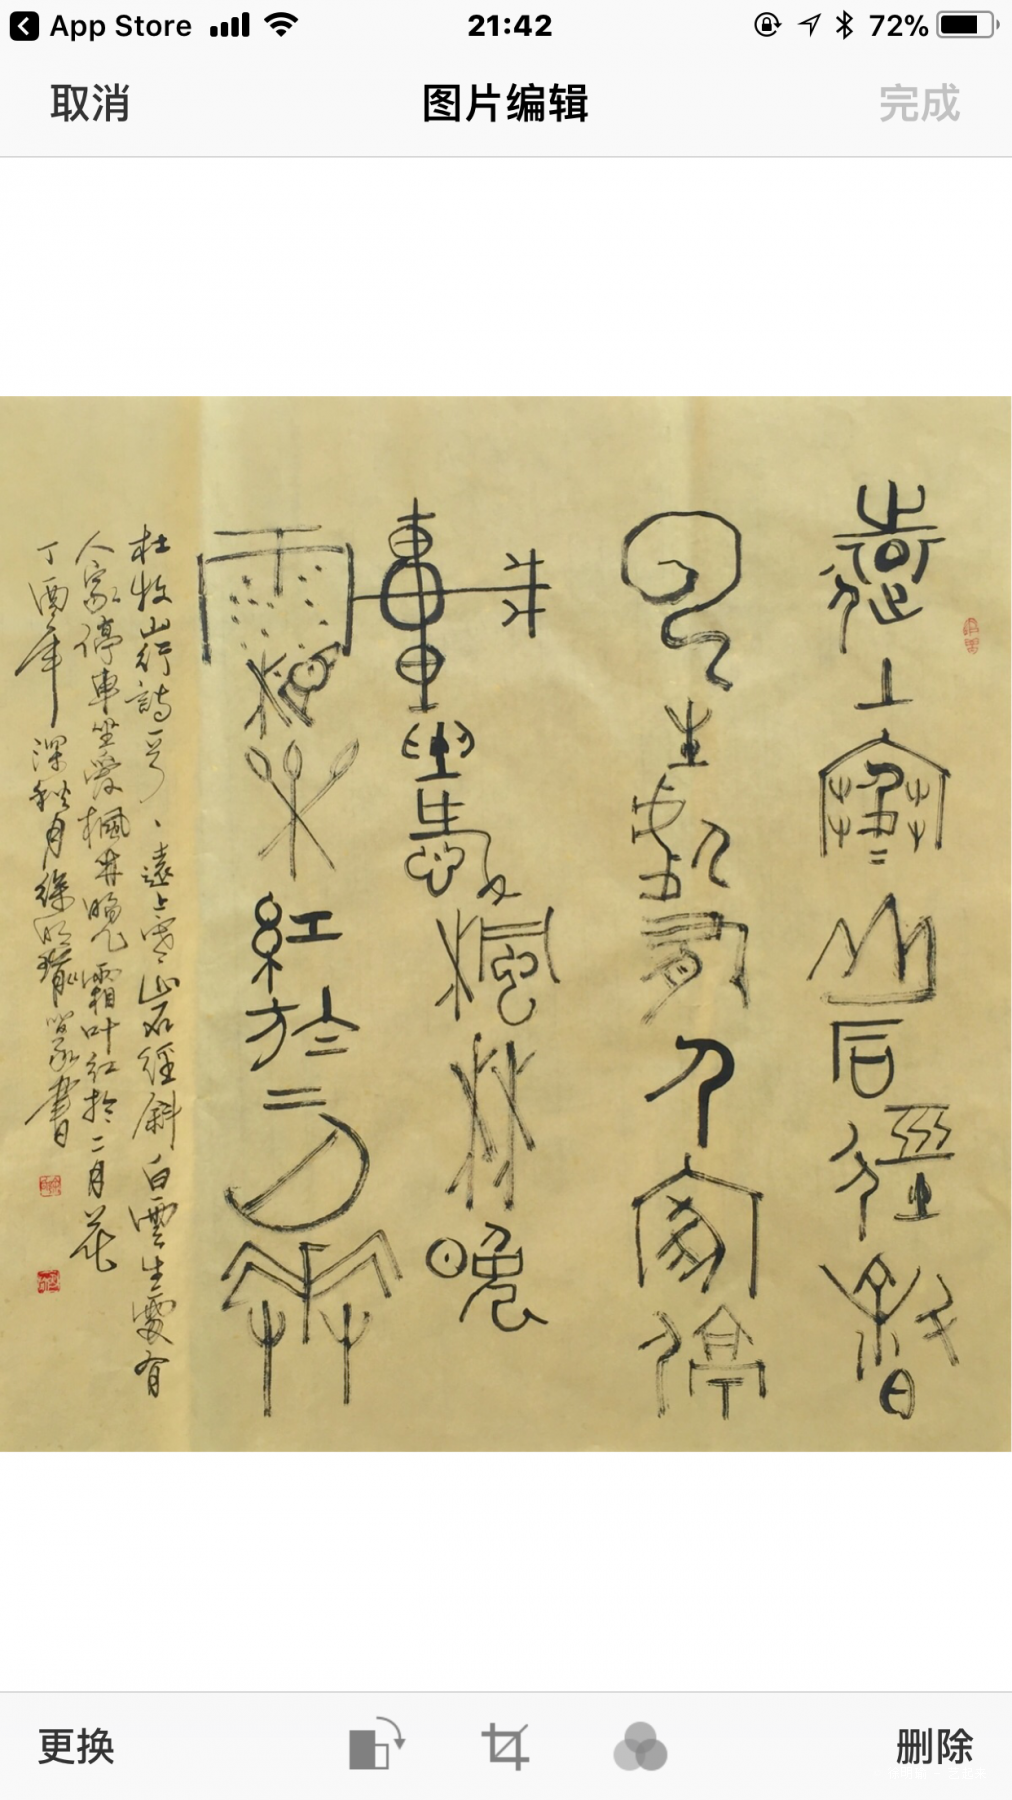 App Store 21:42 72%
取消 图片编辑 完成
遠上寒山石徑斜白
雲生處有人家停
車坐愛楓林晚
霜葉紅於二月花
杜牧山行詩一首、遠上寒山石徑斜白雲生處有
人家停車坐愛楓林晚霜叶紅於二月花
丁酉年深秋月徐
更换 删除